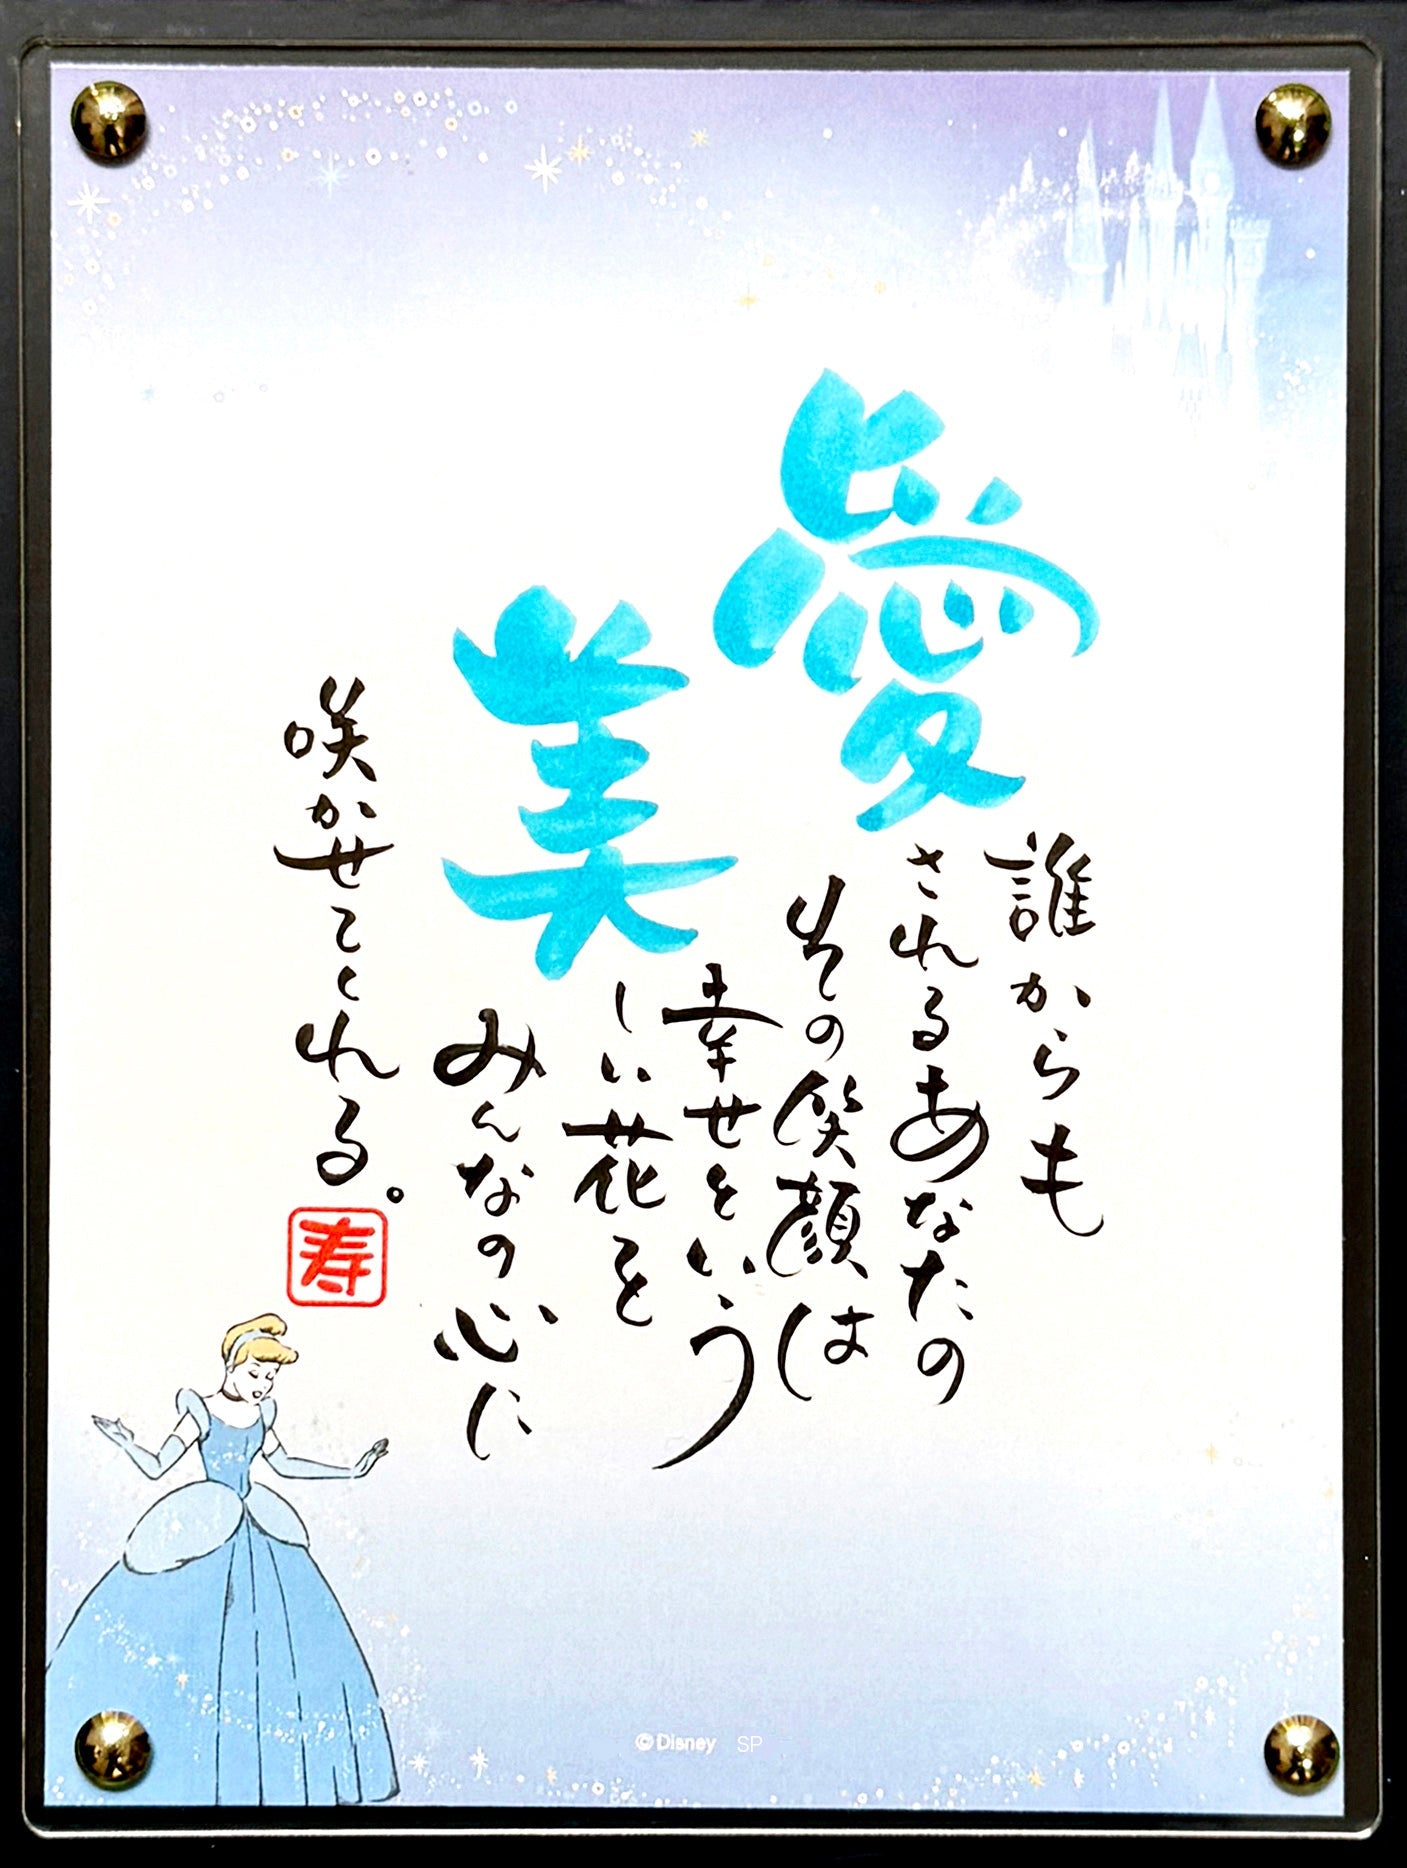 誰からも
愛されるあなたの
その笑顔は
幸せをいう
美しい花を
みんなの心に
咲かせてくれる。
寿
©Disney SP